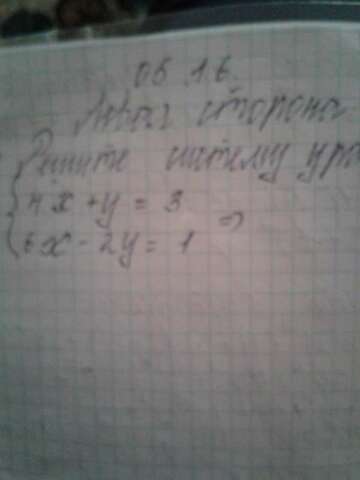 05 1.6.
Левая сторона
Решите систему ура
4x + y = 3
6x - 2y = 1 ⇒